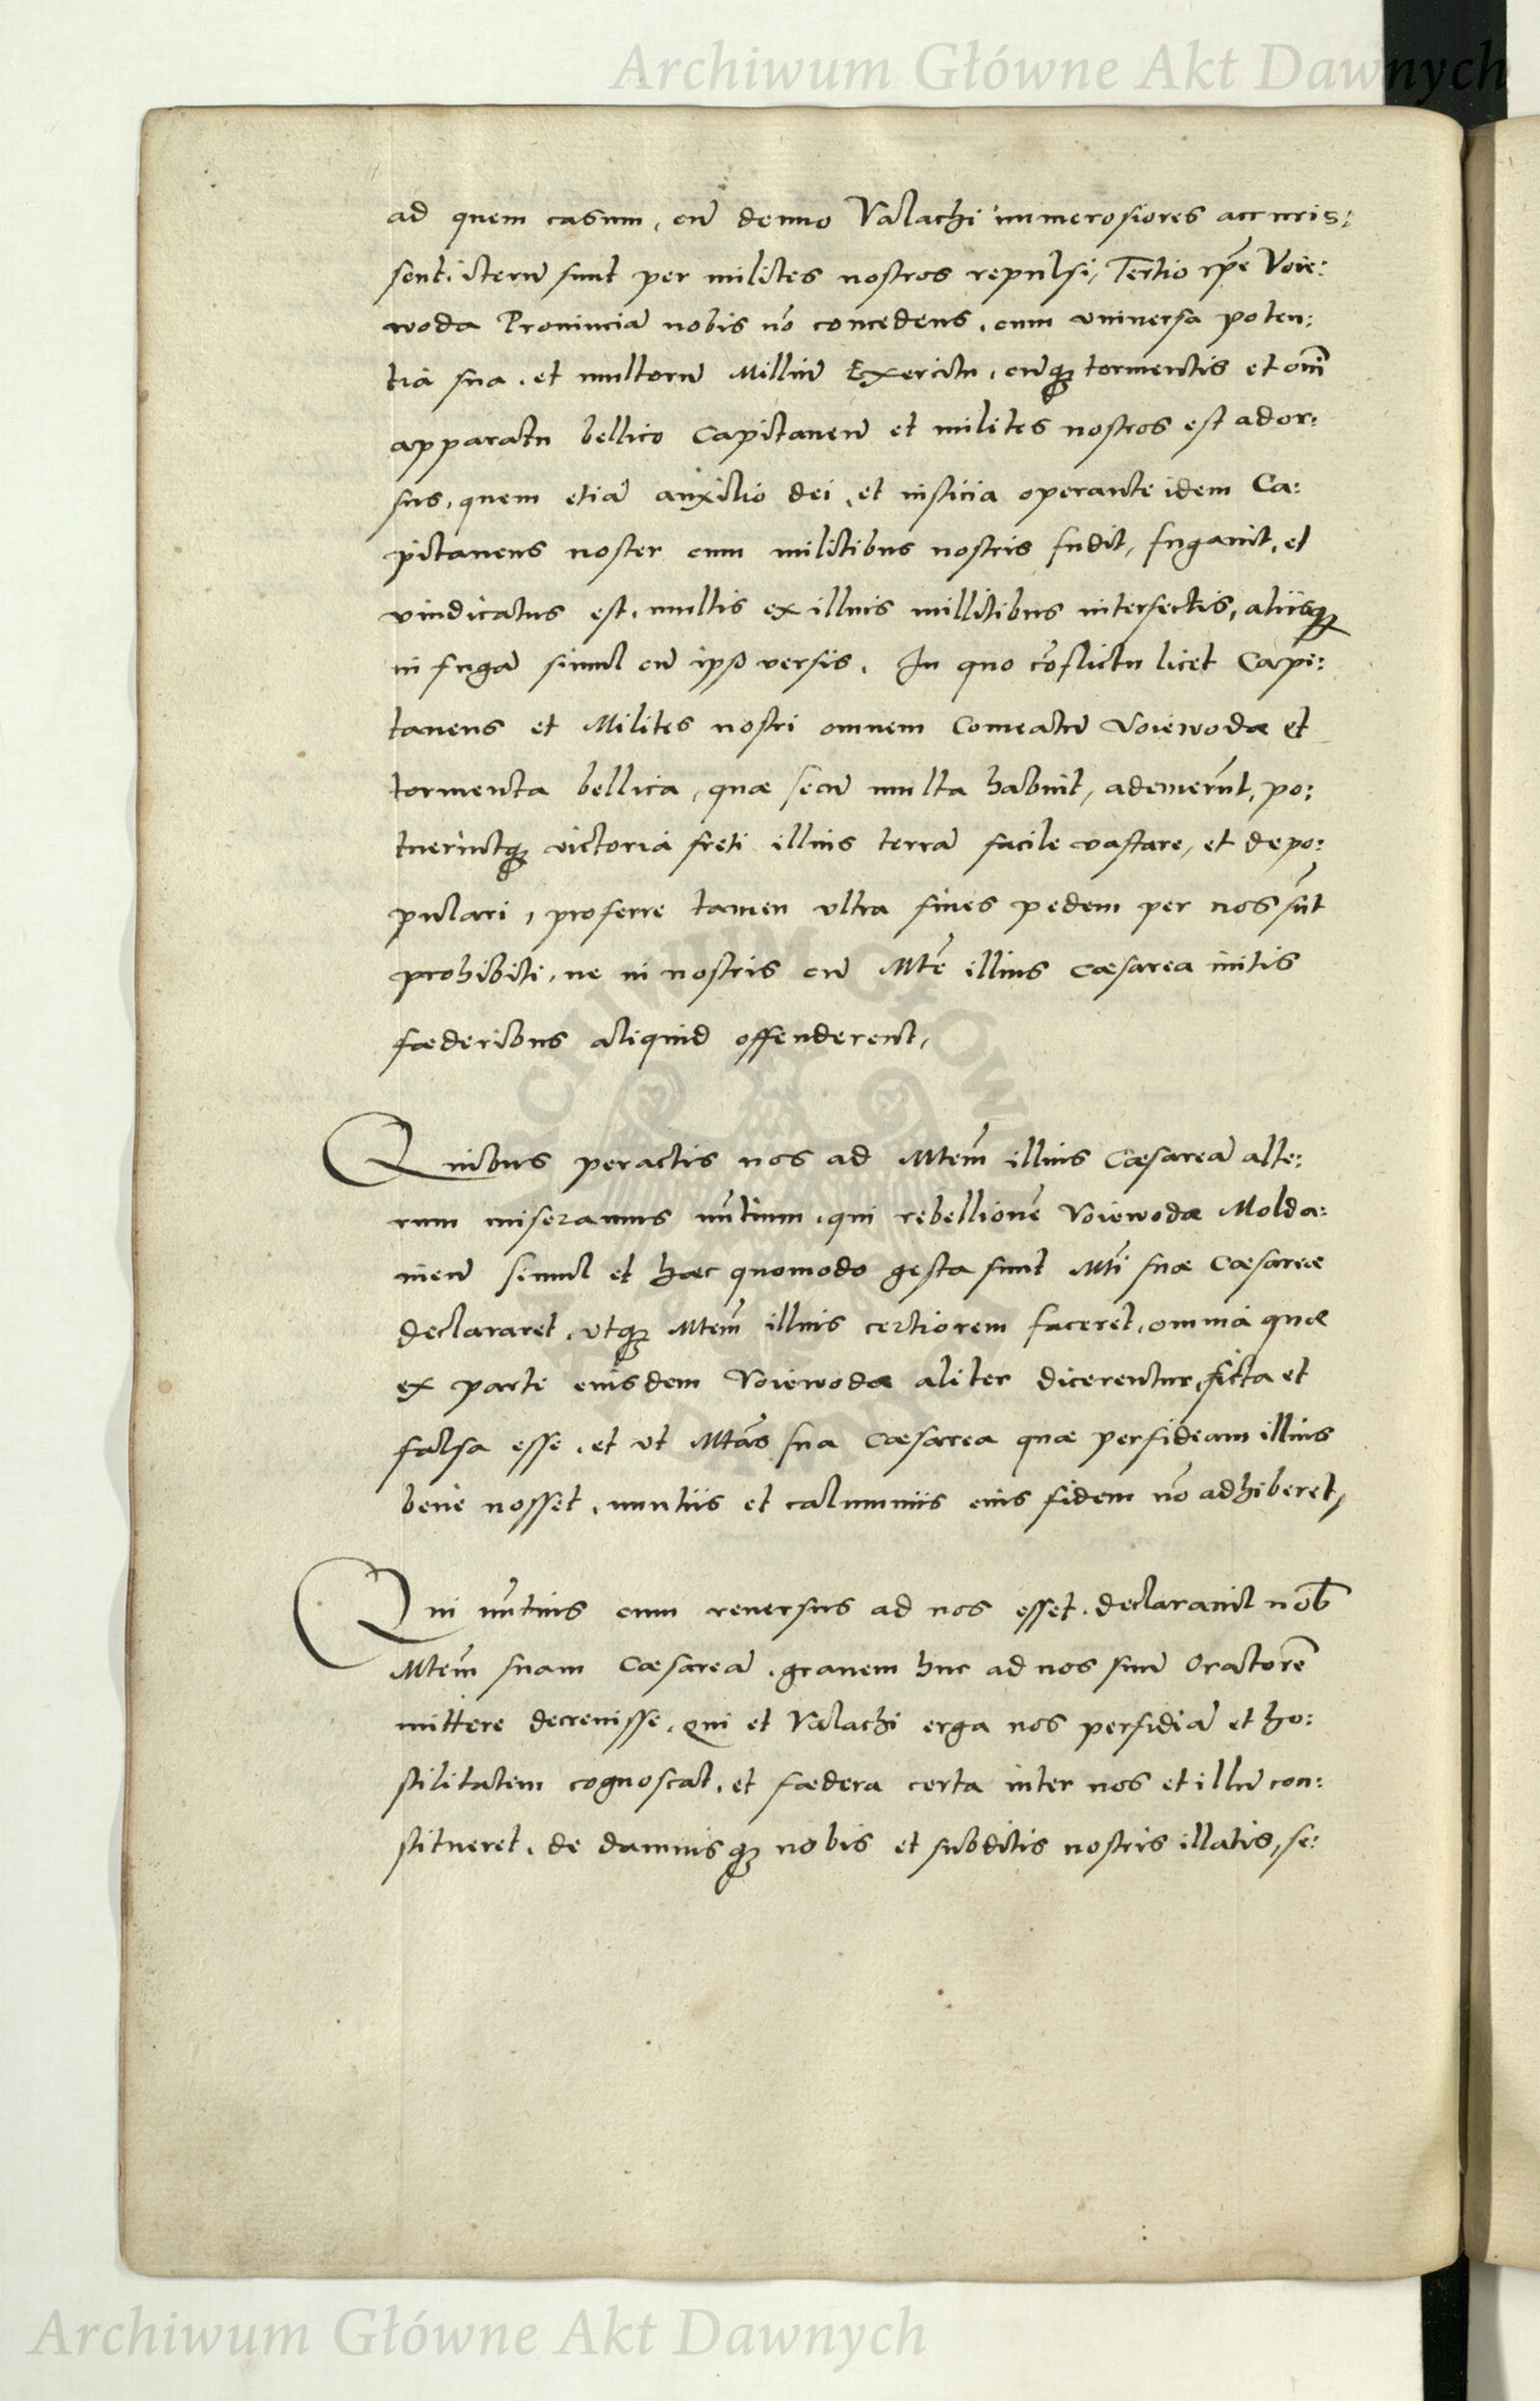 Archiwum Główne Akt Dawnych
ad quem casum, cũ denuo Valachi numerosiores accuris:
sent, iterũ sunt per milites nostros repulsi, Tertio ipẽ Voie:
woda Prouinciã nobis nõ concedens, cum vniuersa poten:
tia sua, et multorũ Milliũ Exercitu, cũq; tormentis et om̃i
apparatu bellico Capitaneũ et milites nostros est ador:
sus, quem etiã auxilio dei, et iusticia operante idem Ca:
pitaneus noster cum militibus nostris fudit, fugauit, et
vindicatus est, multis ex illius millitibus intersectis, aliisq;
in fugã simul cũ ipso versis. In quo cõflictu licet Capi:
taneus et Milites nostri omnem Comeatũ Voiewodæ et
tormenta bellica, quæ secũ multa habuit, ademerũt, po:
tuerintq; victoria freti illius terrã facile vastare, et depo:
pulari, proferre tamen vltra fines pedem per nos sũt
prohibiti, ne in nostris cũ Mte᷉ illius Cæsarea initis
fœderibus aliquid offenderent,
Quibus peractis nos ad Mtem̃ illius Cæsareã alte:
rum miseramus nũtium, qui rebellionẽ Voiewodæ Molda:
uieñ simul et hæc quomodo gesta sunt Mti᷉ suæ Cæsareæ
declararet, vtq; Mtem̃ illius certiorem faceret, omnia quæ
ex parte eiusdem Voiewodæ aliter dicerentur, ficta et
falsa esse, et vt Mtãs sua Cæsarea quæ perfideam illius
bene nosset, nuntiis et calumniis eius fidem nõ adhiberet,
Qui nũtius cum reuersus ad nos esset, declarauit nob̃
Mtem̃ suam Cæsareã, grauem huc ad nos suũ Oratorẽ
mittere decreuisse, Qui et Valachi erga nos perfidiã et ho:
stilitatem cognoscat, et fœdera certa inter nos et illũ con:
stitueret, de damnisq; nobis et subditis nostris illatis, se:
Archiwum Główne Akt Dawnych